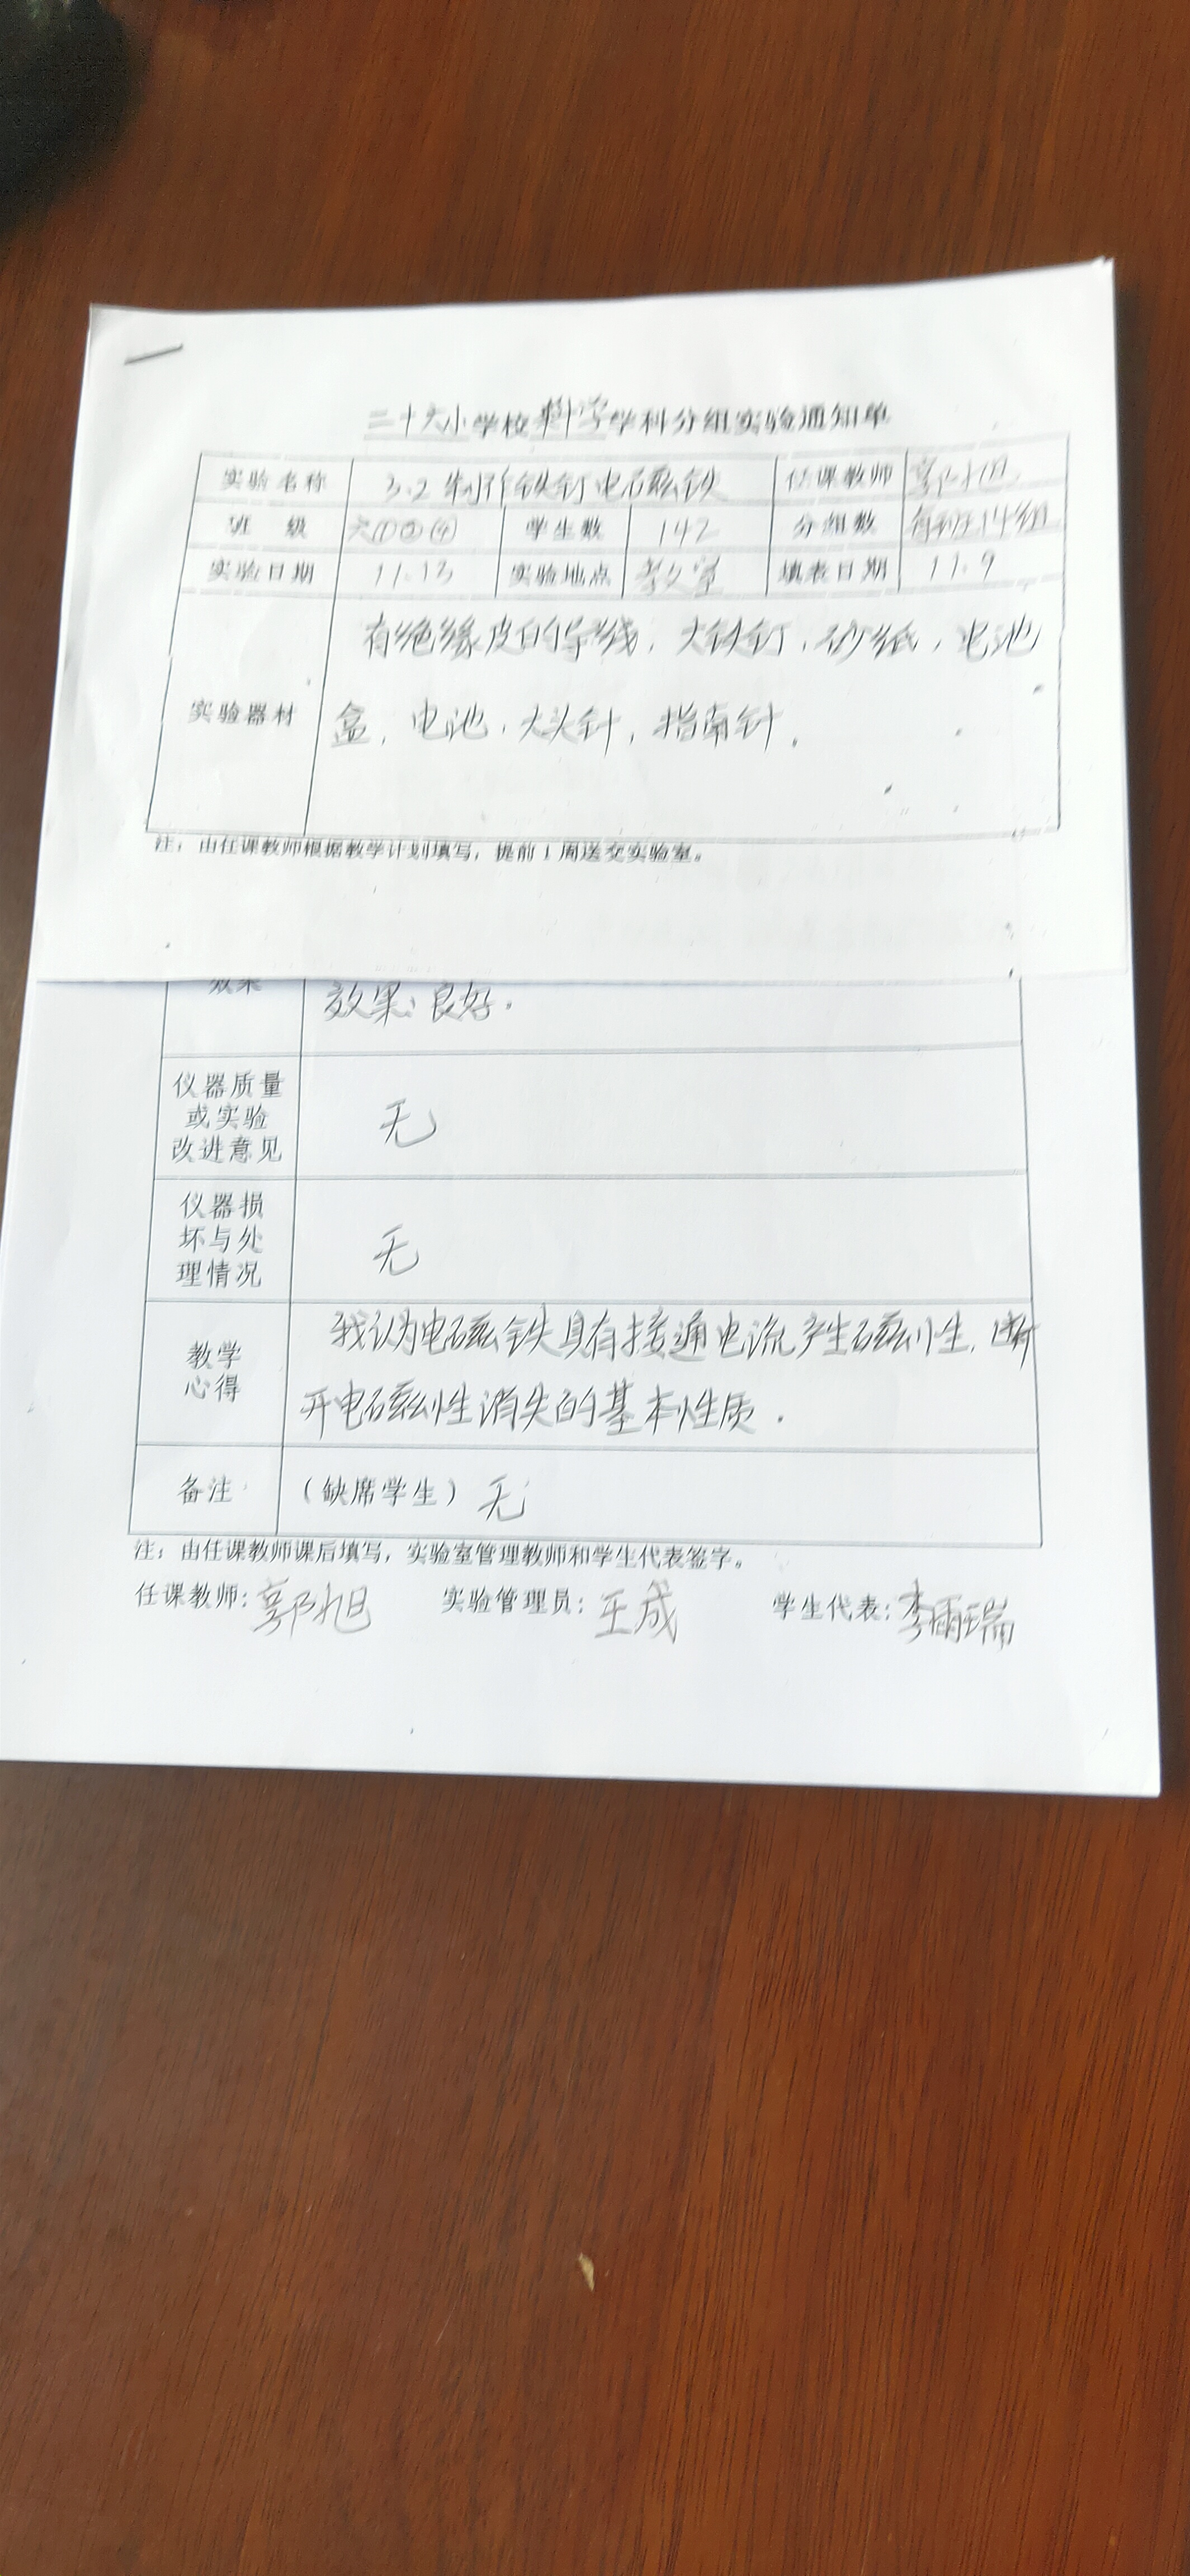 三十六小学校科学学科分组实验通知单
实验名称 3.2 制作铁钉电磁铁 任课教师 郭旭
班 级 六①②④ 学生数 142 分组数 每班14组
实验日期 11.13 实验地点 教室 填表日期 11.9
有绝缘皮的导线，大铁钉，砂纸，电池
实验器材 盒，电池，大头针，指南针。
注：由任课教师根据教学计划填写，提前1周送交实验室。
效果 效果：良好。
仪器质量
或实验 无
改进意见
仪器损
坏与处 无
理情况
我认为电磁铁具有接通电流产生磁性，断
教学
心得 开电磁性消失的基本性质。
备注 （缺席学生）无
注：由任课教师课后填写，实验室管理教师和学生代表签字。
任课教师：郭旭 实验管理员：王成 学生代表：李雨瑞